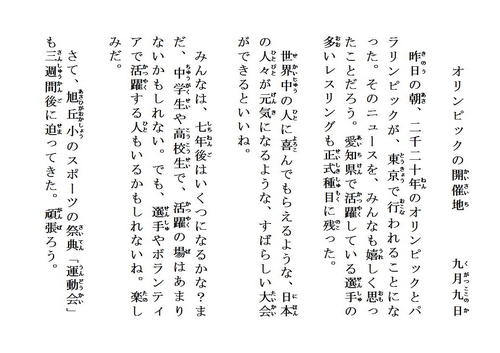 オリンピックの開催地　九月九日
昨日の朝、二千二十年のオリンピックとパ
ラリンピックが、東京で行われることにな
った。そのニュースを、みんなも嬉しく思っ
たことだろう。愛知県で活躍している選手の
多いレスリングも正式種目に残った。
世界中の人に喜んでもらえるような、日本
の人々が元気になるような、すばらしい大会
ができるといいね。
みんなは、七年後はいくつになるかな？ま
だ、中学生や高校生で、活躍の場はあまり
ないかもしれない。でも、選手やボランティ
アで活躍する人もいるかもしれないね。楽し
みだ。
さて、旭丘小のスポーツの祭典「運動会」
も三週間後に迫ってきた。頑張ろう。